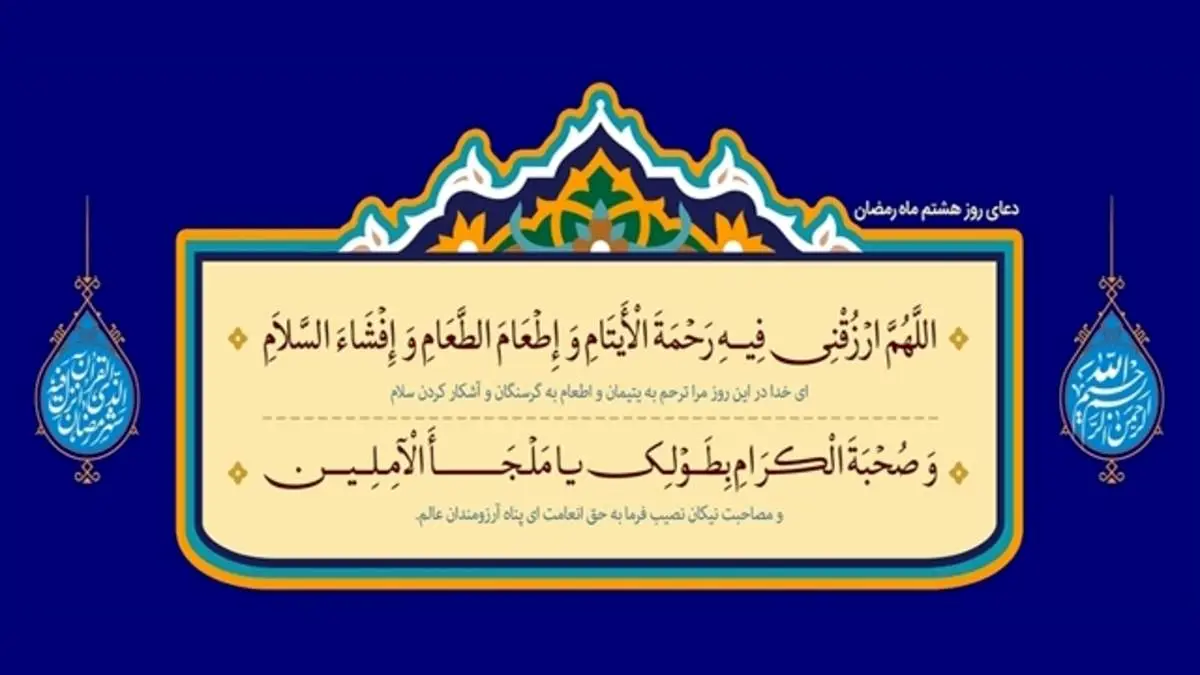 دعای روز هشتم ماه رمضان
اللَّهُمَّ ارْزُقْنِی فِیهِ رَحْمَةَ الْأَیْتَامِ وَ إِطْعَامَ الطَّعَامِ وَ إِفْشَاءَ السَّلاَمِ
ای خدا در این روز مرا ترحم به یتیمان و اطعام به گرسنگان و آشکار کردن سلام
وَ صُحْبَةَ الْکِرَامِ بِطَوْلِکَ یَا مَلْجَأَ الْآمِلِینَ
و مصاحبت نیکان نصیب فرما به حق انعامت ای پناه آرزومندان عالم.
بسم الله الرحمن الرحیم
شهر رمضان الذی انزل فیه القرآن